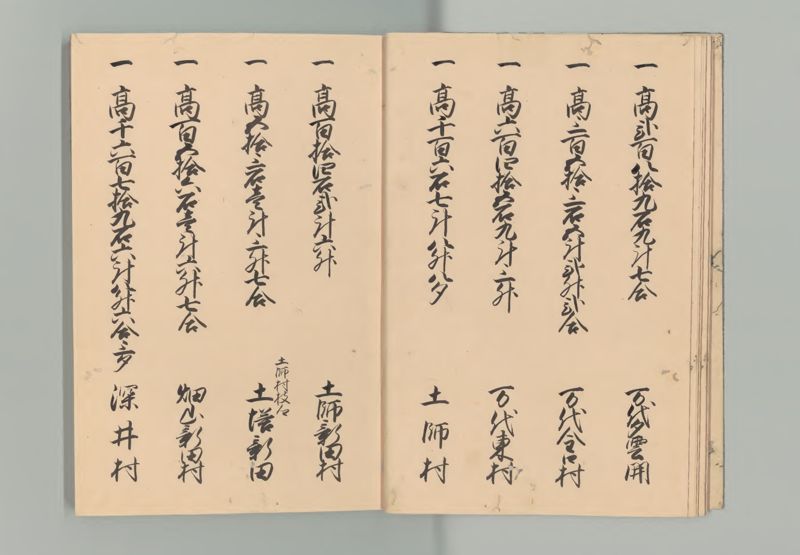 一 高弐百八拾九石九斗七合 万代夕雲開
一 高三百五拾三石五斗弐升弐合 万代金口村
一 高六百四拾五石九斗三升 万代東村
一 高千百六石七斗八升八夕 土師村
一 高百拾四石弐斗六升 土師新田村
土師村枝石
一 高五拾三石壱斗三升七合 土塔新田
一 高百五拾六石壱斗六升七合 畑山新田村
一 高千六百七拾九石六斗八升六合三夕 深井村